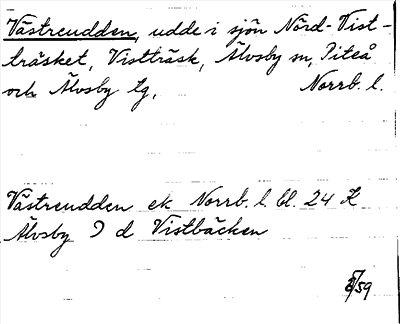 Västreudden, udde i sjön Nörd-Vist-
träsket, Vistträsk, Älvsby sn, Piteå
och Älvsby tg, Norrb. l.
Västreudden ek Norrb. l. bl. 24 K
Älvsby d Vistbäcken
/59